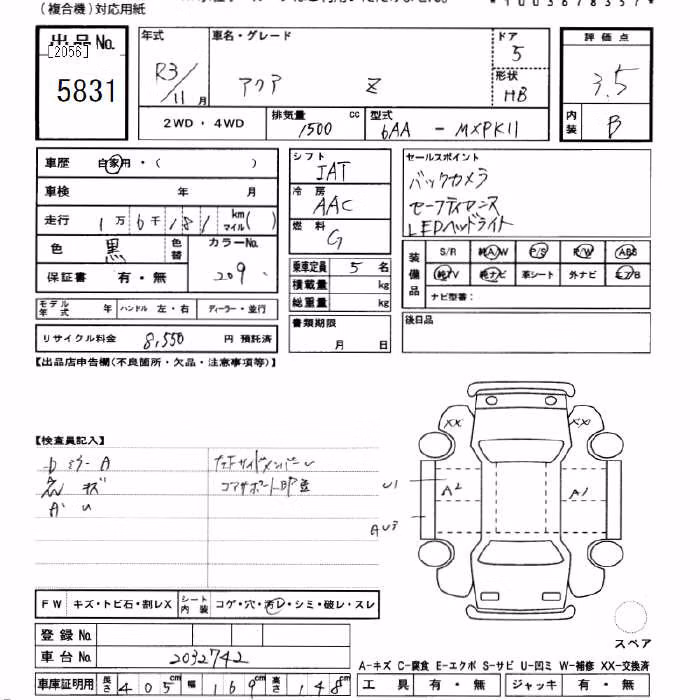 (複合機)対応用紙
*1003678357*
出品No.
[2056]
5831
年式
R3/11月
車名・グレード
アクア Z
ドア
5
形状
HB
評価点
3.5
内装
B
2WD・4WD
排気量
1500 cc
型式
6AA - MXPK11
車歴 自家用・( )
車検 年 月
走行 1万6千181 km マイル( )
色 黒 色替 カラーNo. 209
保証書 有・無
モデル年式 年 ハンドル 左・右 ディーラー・並行
リサイクル料金 8,550 円 預託済
シフト
IAT
冷房
AAC
燃料
G
乗車定員 5 名
積載量 kg
総重量 kg
書類期限
月 日
セールスポイント
バックカメラ
セーフティセンス
LEDヘッドライト
装備品
S/R 純A/W P/S P/W ABS
純TV 純ナビ 革シート 外ナビ エア/B
ナビ型番:
後日品
【出品店申告欄(不良箇所・欠品・注意事項等)】
【検査員記入】
ミラーA
キズ
左Fサイドメンバーレ
コアサポート
XX XX
U1 A2 A1
AU3
スペア
FW キズ・トビ石・割レX シート内装 コゲ・穴・汚レ・シミ・破レ・スレ
登録No.
車台No. 2032742
A-キズ C-腐食 E-エクボ S-サビ U-凹ミ W-補修 XX-交換済
車庫証明用 長さ 405cm 幅 169cm 高さ 148cm
工具 有・無 ジャッキ 有・無